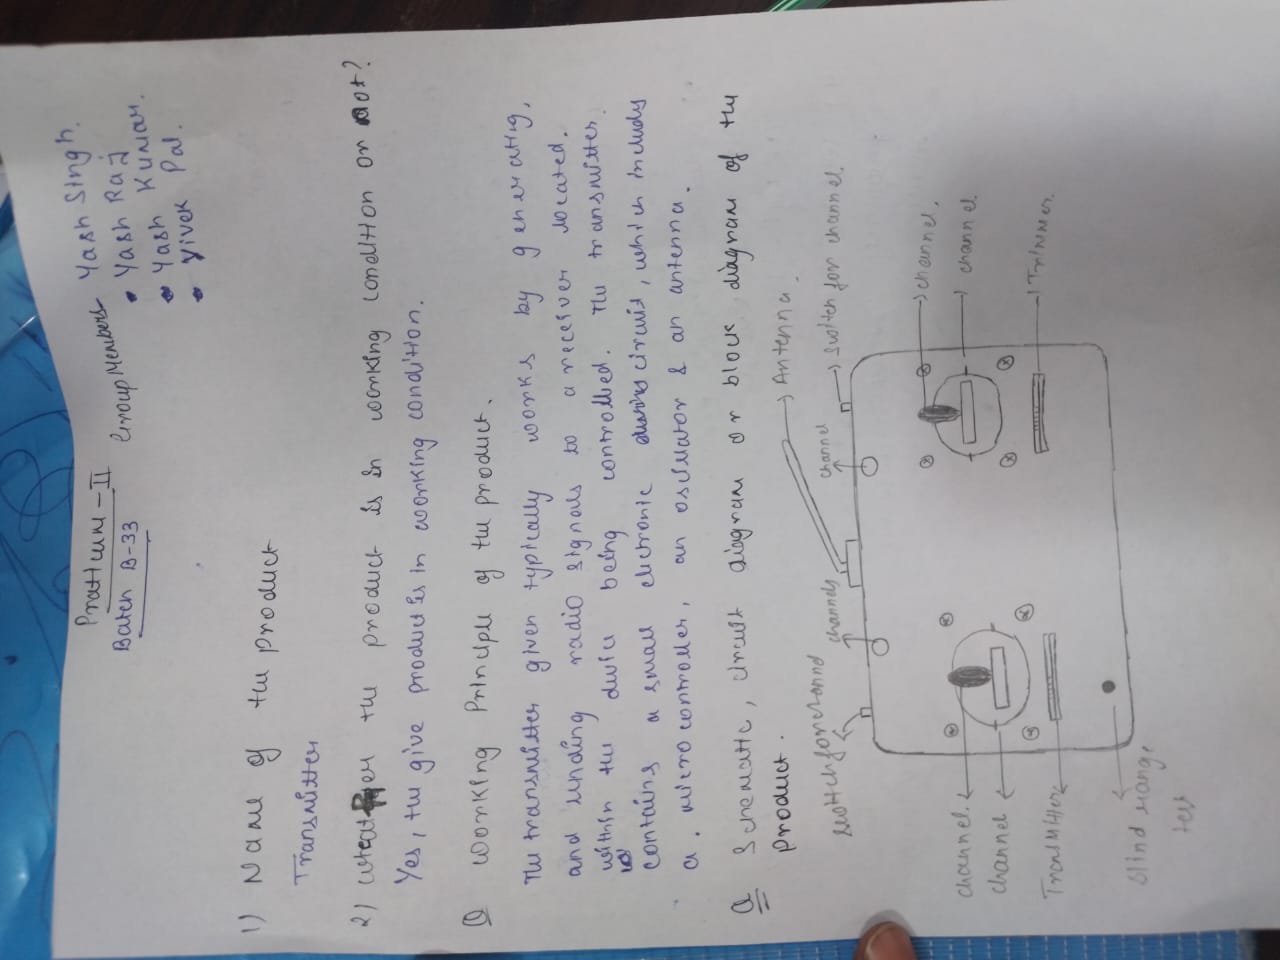 Practicum - II
Batch B-33
Group Members Yash Singh.
• Yash Raj
• Yash Kumar.
• Vivek Pal.
1) Name of the product
Transmitter
2) the product is in working condition or not?
Yes, the give product is in working condition.
Q Working Principle of the product.
The transmitter given typically works by generating,
and sending radio signals to a receiver located.
within the device being controlled. The transmitter.
contains a small electronic circuit, which includs
a. microcontroller, an oscillator & an antenna.
Q Schematic, circuit diagram or block diagram of the
product.
Antenna
switch for channel
channels
channel
switch for channel.
channel.
channel.
channel
channel.
Transmitter
Trimmer.
blind range
test